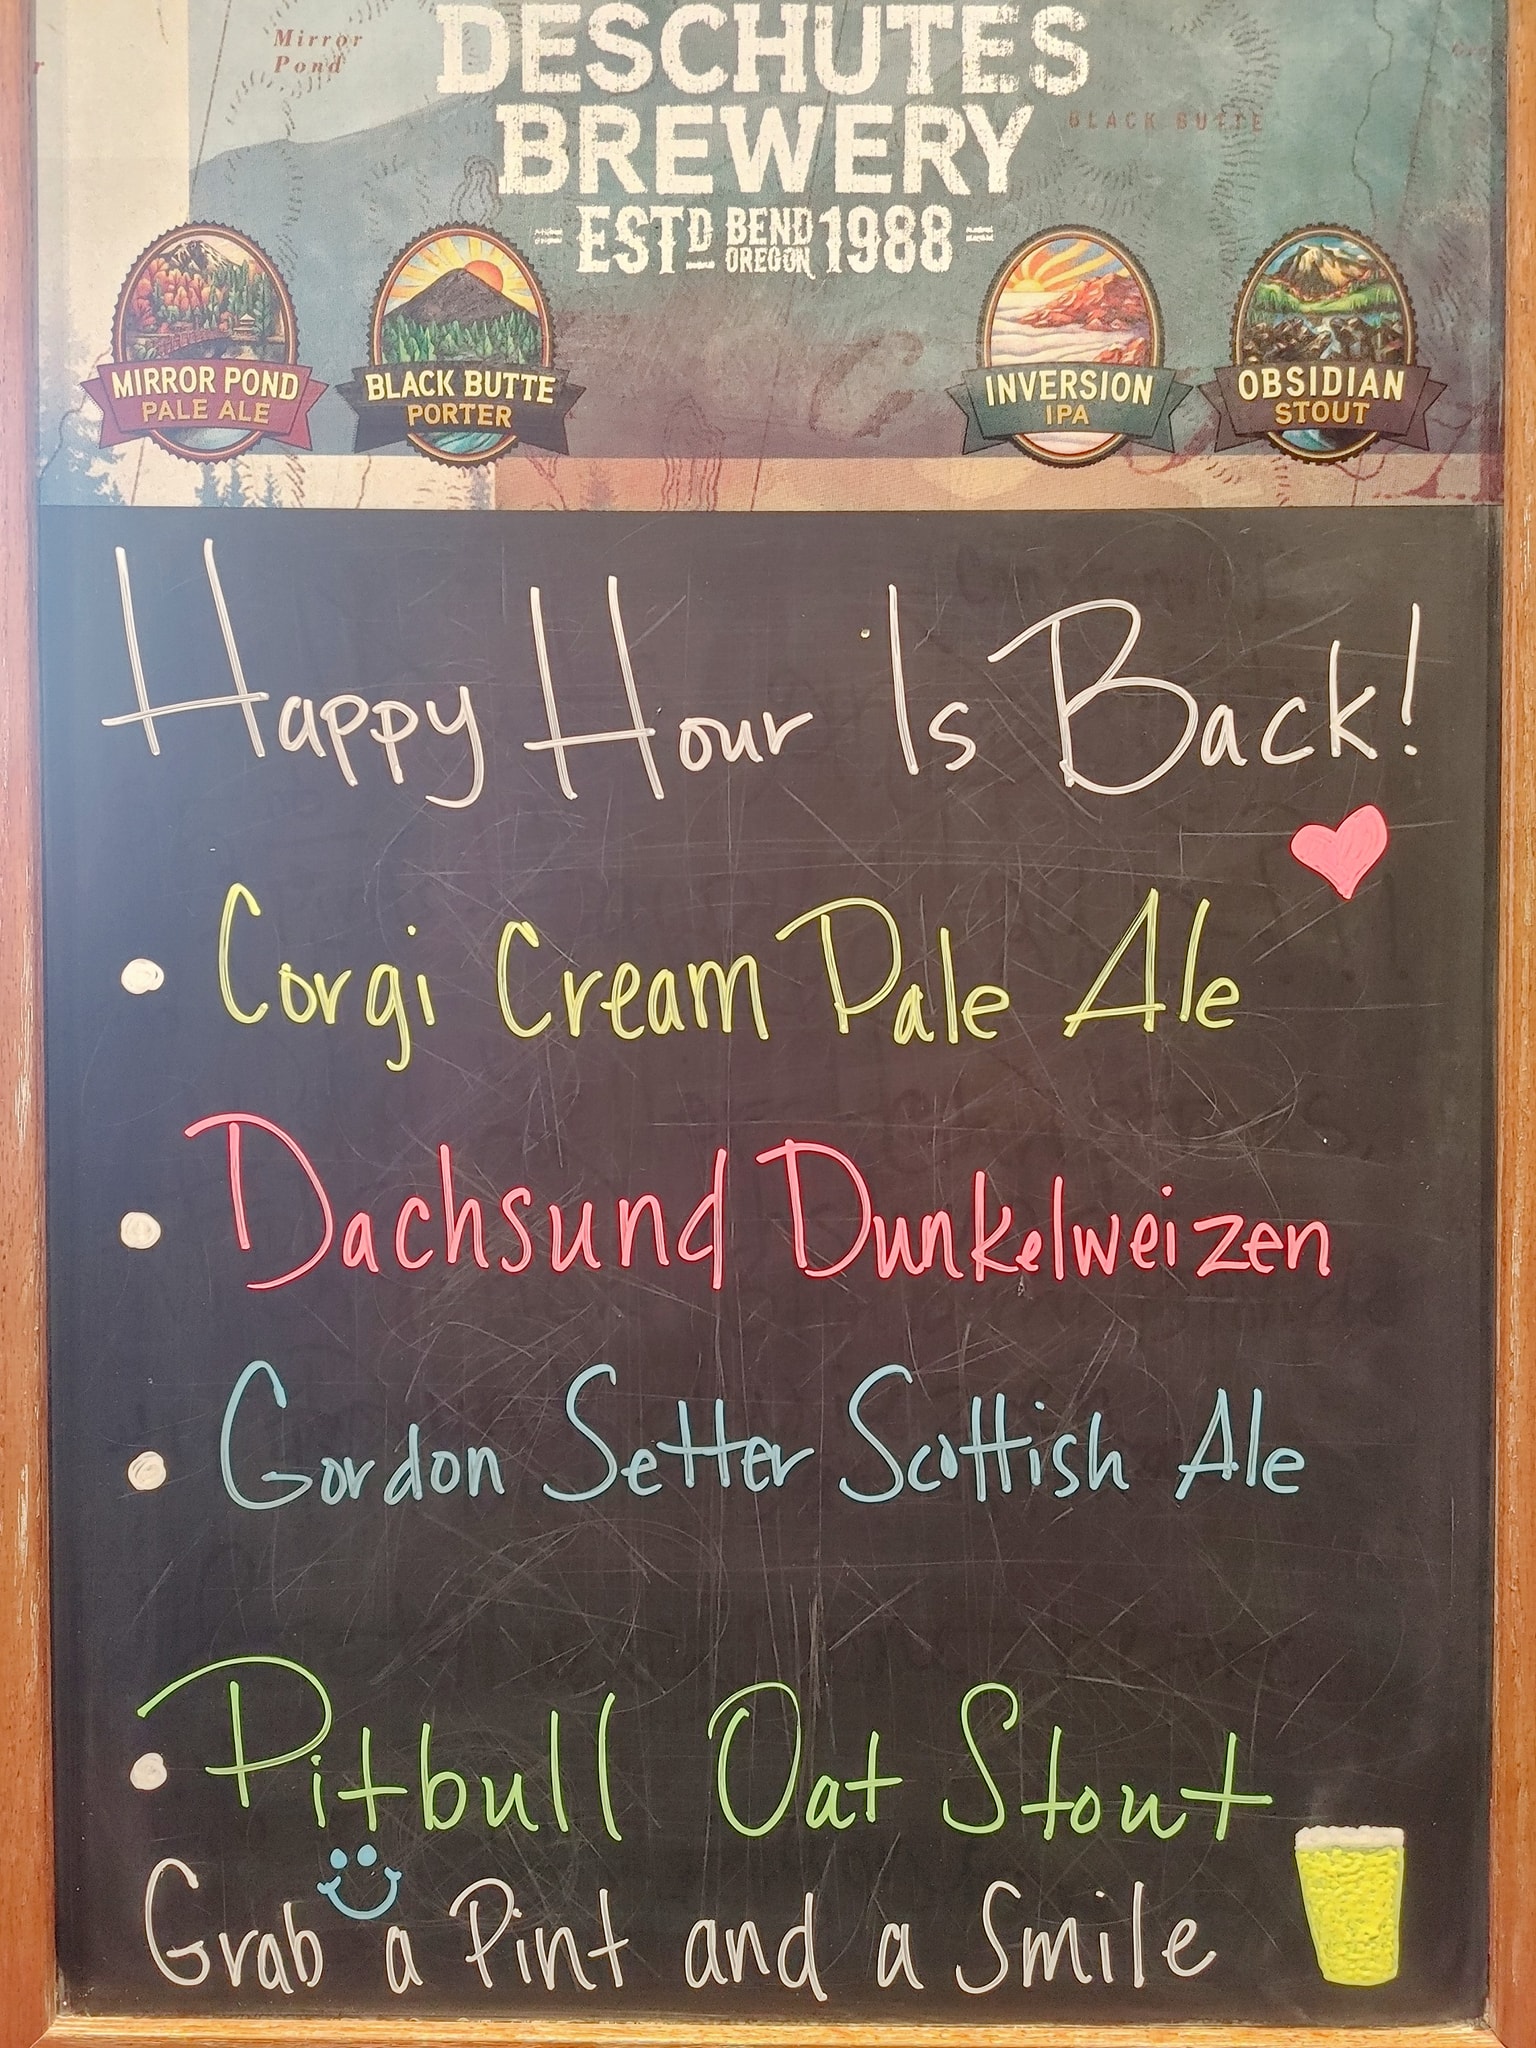 Mirror
Pond
DESCHUTES
BREWERY
BLACK BUTTE
ESTD BEND OREGON 1988
MIRROR POND
PALE ALE
BLACK BUTTE
PORTER
INVERSION
IPA
OBSIDIAN
STOUT
Happy Hour Is Back!
Corgi Cream Pale Ale
Dachsund Dunkelweizen
Gordon Setter Scottish Ale
Pitbull Oat Stout
Grab a Pint and a Smile